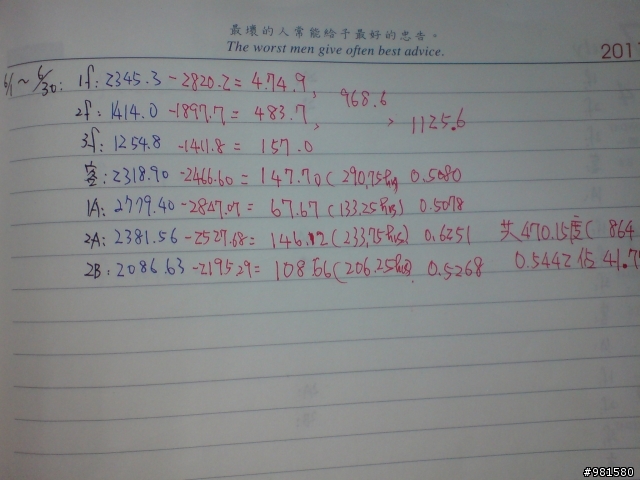 最壞的人常能給予最好的忠告。
The worst men give often best advice.
2011
6/1~6/30: 1f: 2345.3 -2820.2= 474.9, 968.6
2f: 1414.0 -1897.7= 483.7, > 1125.6
3f: 1254.8 -1411.8= 157.0
客: 2318.90 -2466.60= 147.70(290.75hrs) 0.5080
1A: 2779.40 -2847.07= 67.67(133.25hrs) 0.5078
2A: 2381.56 -2527.68= 146.12(233.75hrs) 0.6251 共470.15度(864
2B: 2086.63 -2195.29= 108.66(206.25hrs) 0.5268 0.5442 佔41.7
#981580